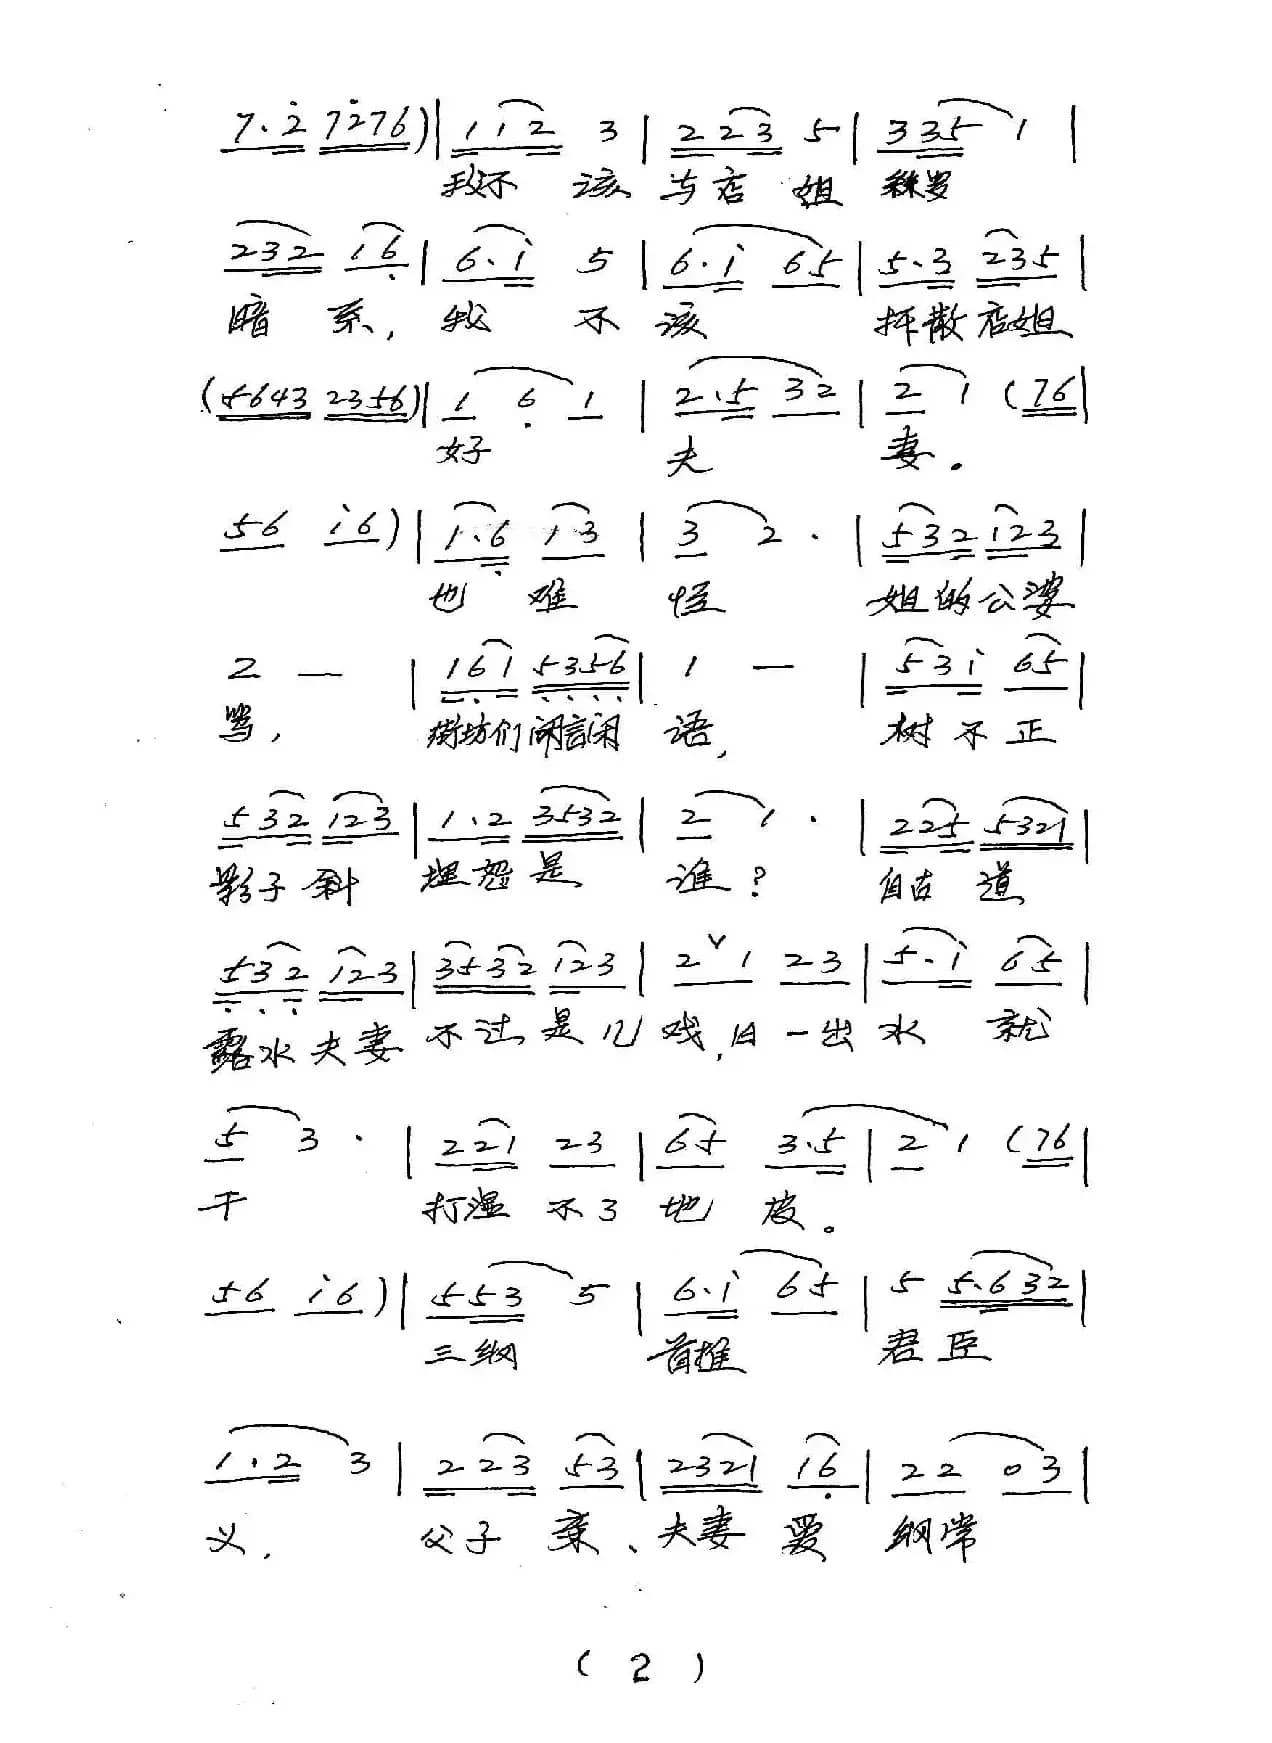 7·2 7276)| 112 3 | 223 5 | 335 1 |
我不该与店姐
232 16 | 6·i 5 | 6·i 65 | 5·3 235 |
暗系，我不该拆散店姐
(5643 2356)| 1 6 1 | 2·5 32 | 2 1 (76 |
好夫妻。
56 i6)| 1·6 13 | 3 2· | 532 123 |
也难怪姐的公婆
2 — | 161 5356 | 1 — | 53i 65 |
骂，街坊们闲言闲语，树不正
532 123 | 1·2 3532 | 2 1· | 225 5321 |
影子斜埋怨是谁？自古道
532 123 | 3532 123 | 2ˇ1 23 | 5·i 65 |
露水夫妻不过是儿戏，日一出水就
5 3· | 221 23 | 65 3·5 | 2 1 (76 |
干打湿不了地皮。
56 i6)| 553 5 | 6·i 65 | 5 5·632 |
三纲首推君臣
1·2 3 | 223 53 | 2321 16 | 22 03 |
义，父子亲、夫妻爱纲常
(2)